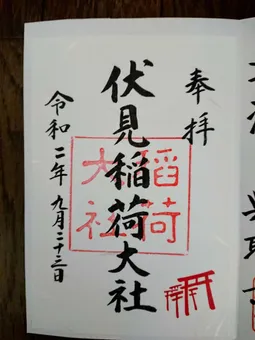 奉拝
伏見稲荷大社
稲荷
大社
令和二年九月二十三日